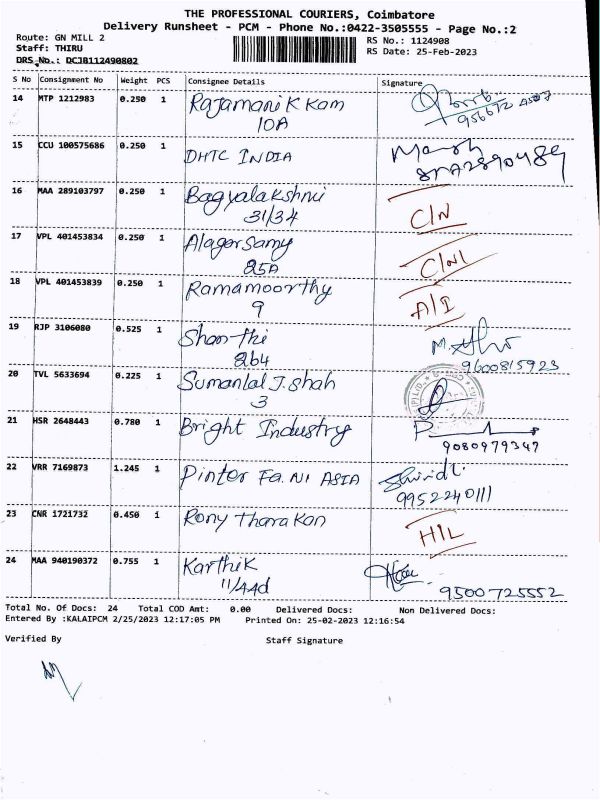 THE PROFESSIONAL COURIERS, Coimbatore
Delivery Runsheet - PCM - Phone No.:0422-3505555 - Page No.:2
Route: GN MILL 2
RS No.: 1124908
Staff: THIRU
RS Date: 25-Feb-2023
DRS No.: DCJB112490802
S No Consignment No Weight PCS Consignee Details Signature
14 MTP 1212983 0.250 1 Rajamani K Kam
10A
15 CCU 100575686 0.250 1 DHTC INDIA
16 MAA 289103797 0.250 1 Bagyalakshmi C/N
31/34
17 VPL 401453834 0.250 1 Alagarsamy C/N1
25A
18 VPL 401453839 0.250 1 Ramamoorthy A/I
9
19 RJP 3106080 0.525 1 Shanthi
264 9600815923
20 TVL 5633694 0.225 1 Sumanlal J. Shah
3
21 HSR 2648443 0.780 1 Bright Industry
9080979347
22 VRR 7169873 1.245 1 Pinter Fa. NI ASIA
9952240111
23 CNR 1721732 0.450 1 Rony Tharakan H/L
24 MAA 940190372 0.755 1 Karthik
11/44d 9500725552
Total No. Of Docs: 24 Total COD Amt: 0.00 Delivered Docs: Non Delivered Docs:
Entered By :KALAIPCM 2/25/2023 12:17:05 PM Printed On: 25-02-2023 12:16:54
Verified By Staff Signature